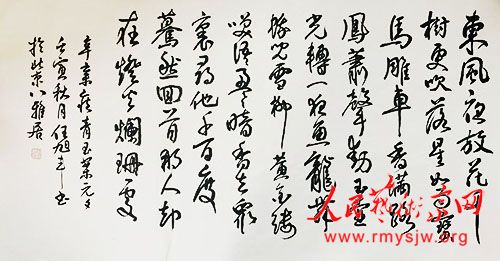 東風夜放花千
樹更吹落星如雨寶
馬雕車香滿路
鳳簫聲動玉壺
光轉一夜魚龍舞
蛾兒雪柳黃金縷
笑語盈盈暗香去眾
裏尋他千百度
驀然回首那人却
在燈火爛珊處
辛棄疾青玉案元夕
壬寅秋月任旭書
於北京八雅居
人民藝術家网
www.rmysjw.org